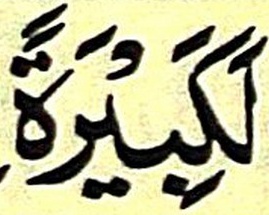 لَكَبِيْرَةً